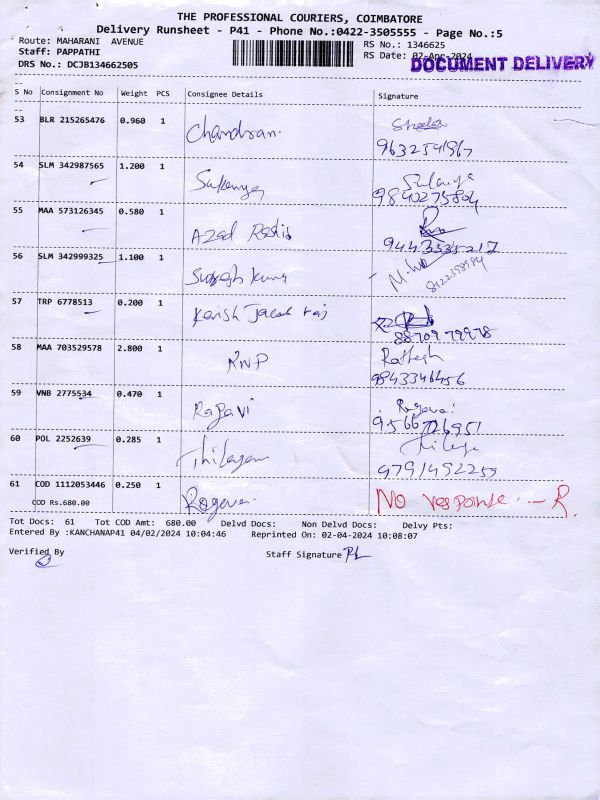 THE PROFESSIONAL COURIERS, COIMBATORE
Delivery Runsheet - P41 - Phone No.:0422-3505555 - Page No.:5
Route: MAHARANI AVENUE
RS No.: 1346625
Staff: PAPPATHI
RS Date: 02-Apr-2024
DRS No.: DCJB134662505
DOCUMENT DELIVERY
S No Consignment No Weight PCS Consignee Details Signature
53 BLR 215265476 0.960 1 Chandran.
54 SLM 342987565 1.200 1 Sukanya
9840275804
55 MAA 573126345 0.580 1 Azad
9443335217
56 SLM 342999325 1.100 1 Suresh Kumar
57 TRP 6778513 0.200 1 Jacob raj
8870979978
58 MAA 703529578 2.800 1 KNP Rathesh
9843346456
59 VNB 2775534 0.470 1 Ragavi
9566726951
60 POL 2252639 0.285 1 Thilagam
9791492259
61 COD 1112053446 0.250 1 No response - R.
COD Rs.680.00
Tot Docs: 61 Tot COD Amt: 680.00 Delvd Docs: Non Delvd Docs: Delvy Pts:
Entered By :KANCHANAP41 04/02/2024 10:04:46 Reprinted On: 02-04-2024 10:08:07
Verified By Staff Signature